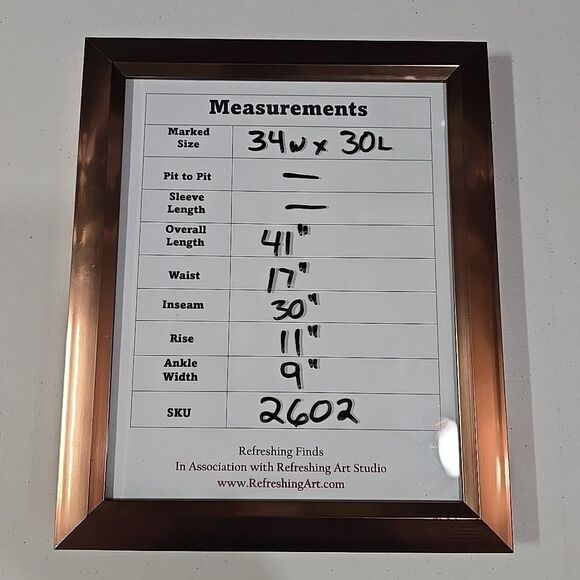 Measurements
Marked
Size
34W x 30L
Pit to Pit
—
Sleeve
Length
—
Overall
Length
41"
Waist
17"
Inseam
30"
Rise
11"
Ankle
Width
9"
SKU
2602
Refreshing Finds
In Association with Refreshing Art Studio
www.RefreshingArt.com